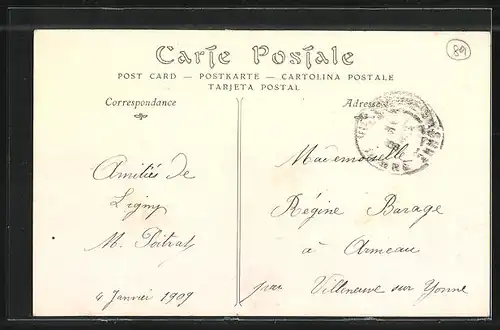 89
Carte Postale
POST CARD — POSTKARTE — CARTOLINA POSTALE
TARJETA POSTAL
Correspondance
Adresse
Amitiés de
Ligny
M. Poitrat
4 Janvier 1909
Mademoiselle
Régine Barage
à Armeau
par Villeneuve sur Yonne